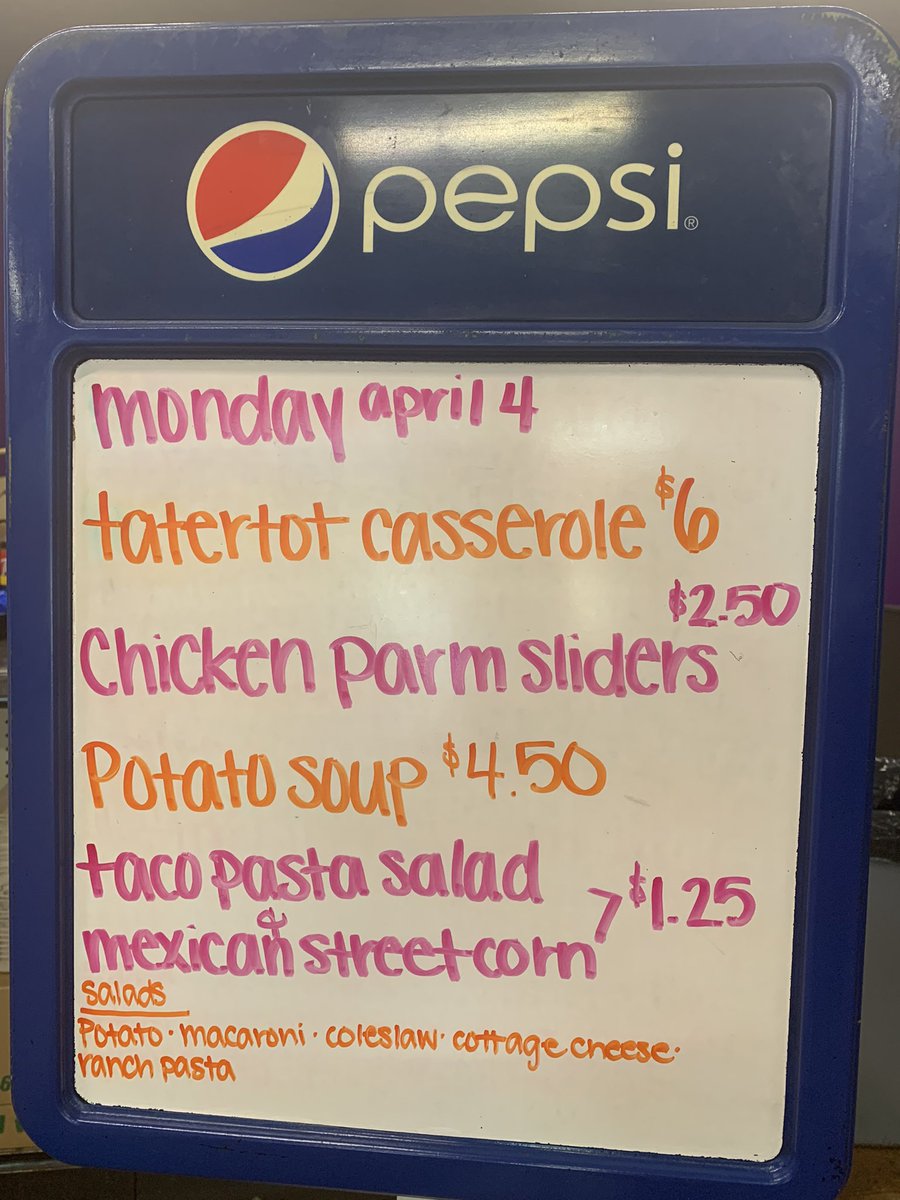 pepsi®
monday april 4
tatertot casserole $6
$2.50
Chicken parm sliders
Potato soup $4.50
taco pasta salad
&
mexican street corn > $1.25
salads
Potato · macaroni · coleslaw · cottage cheese ·
ranch pasta